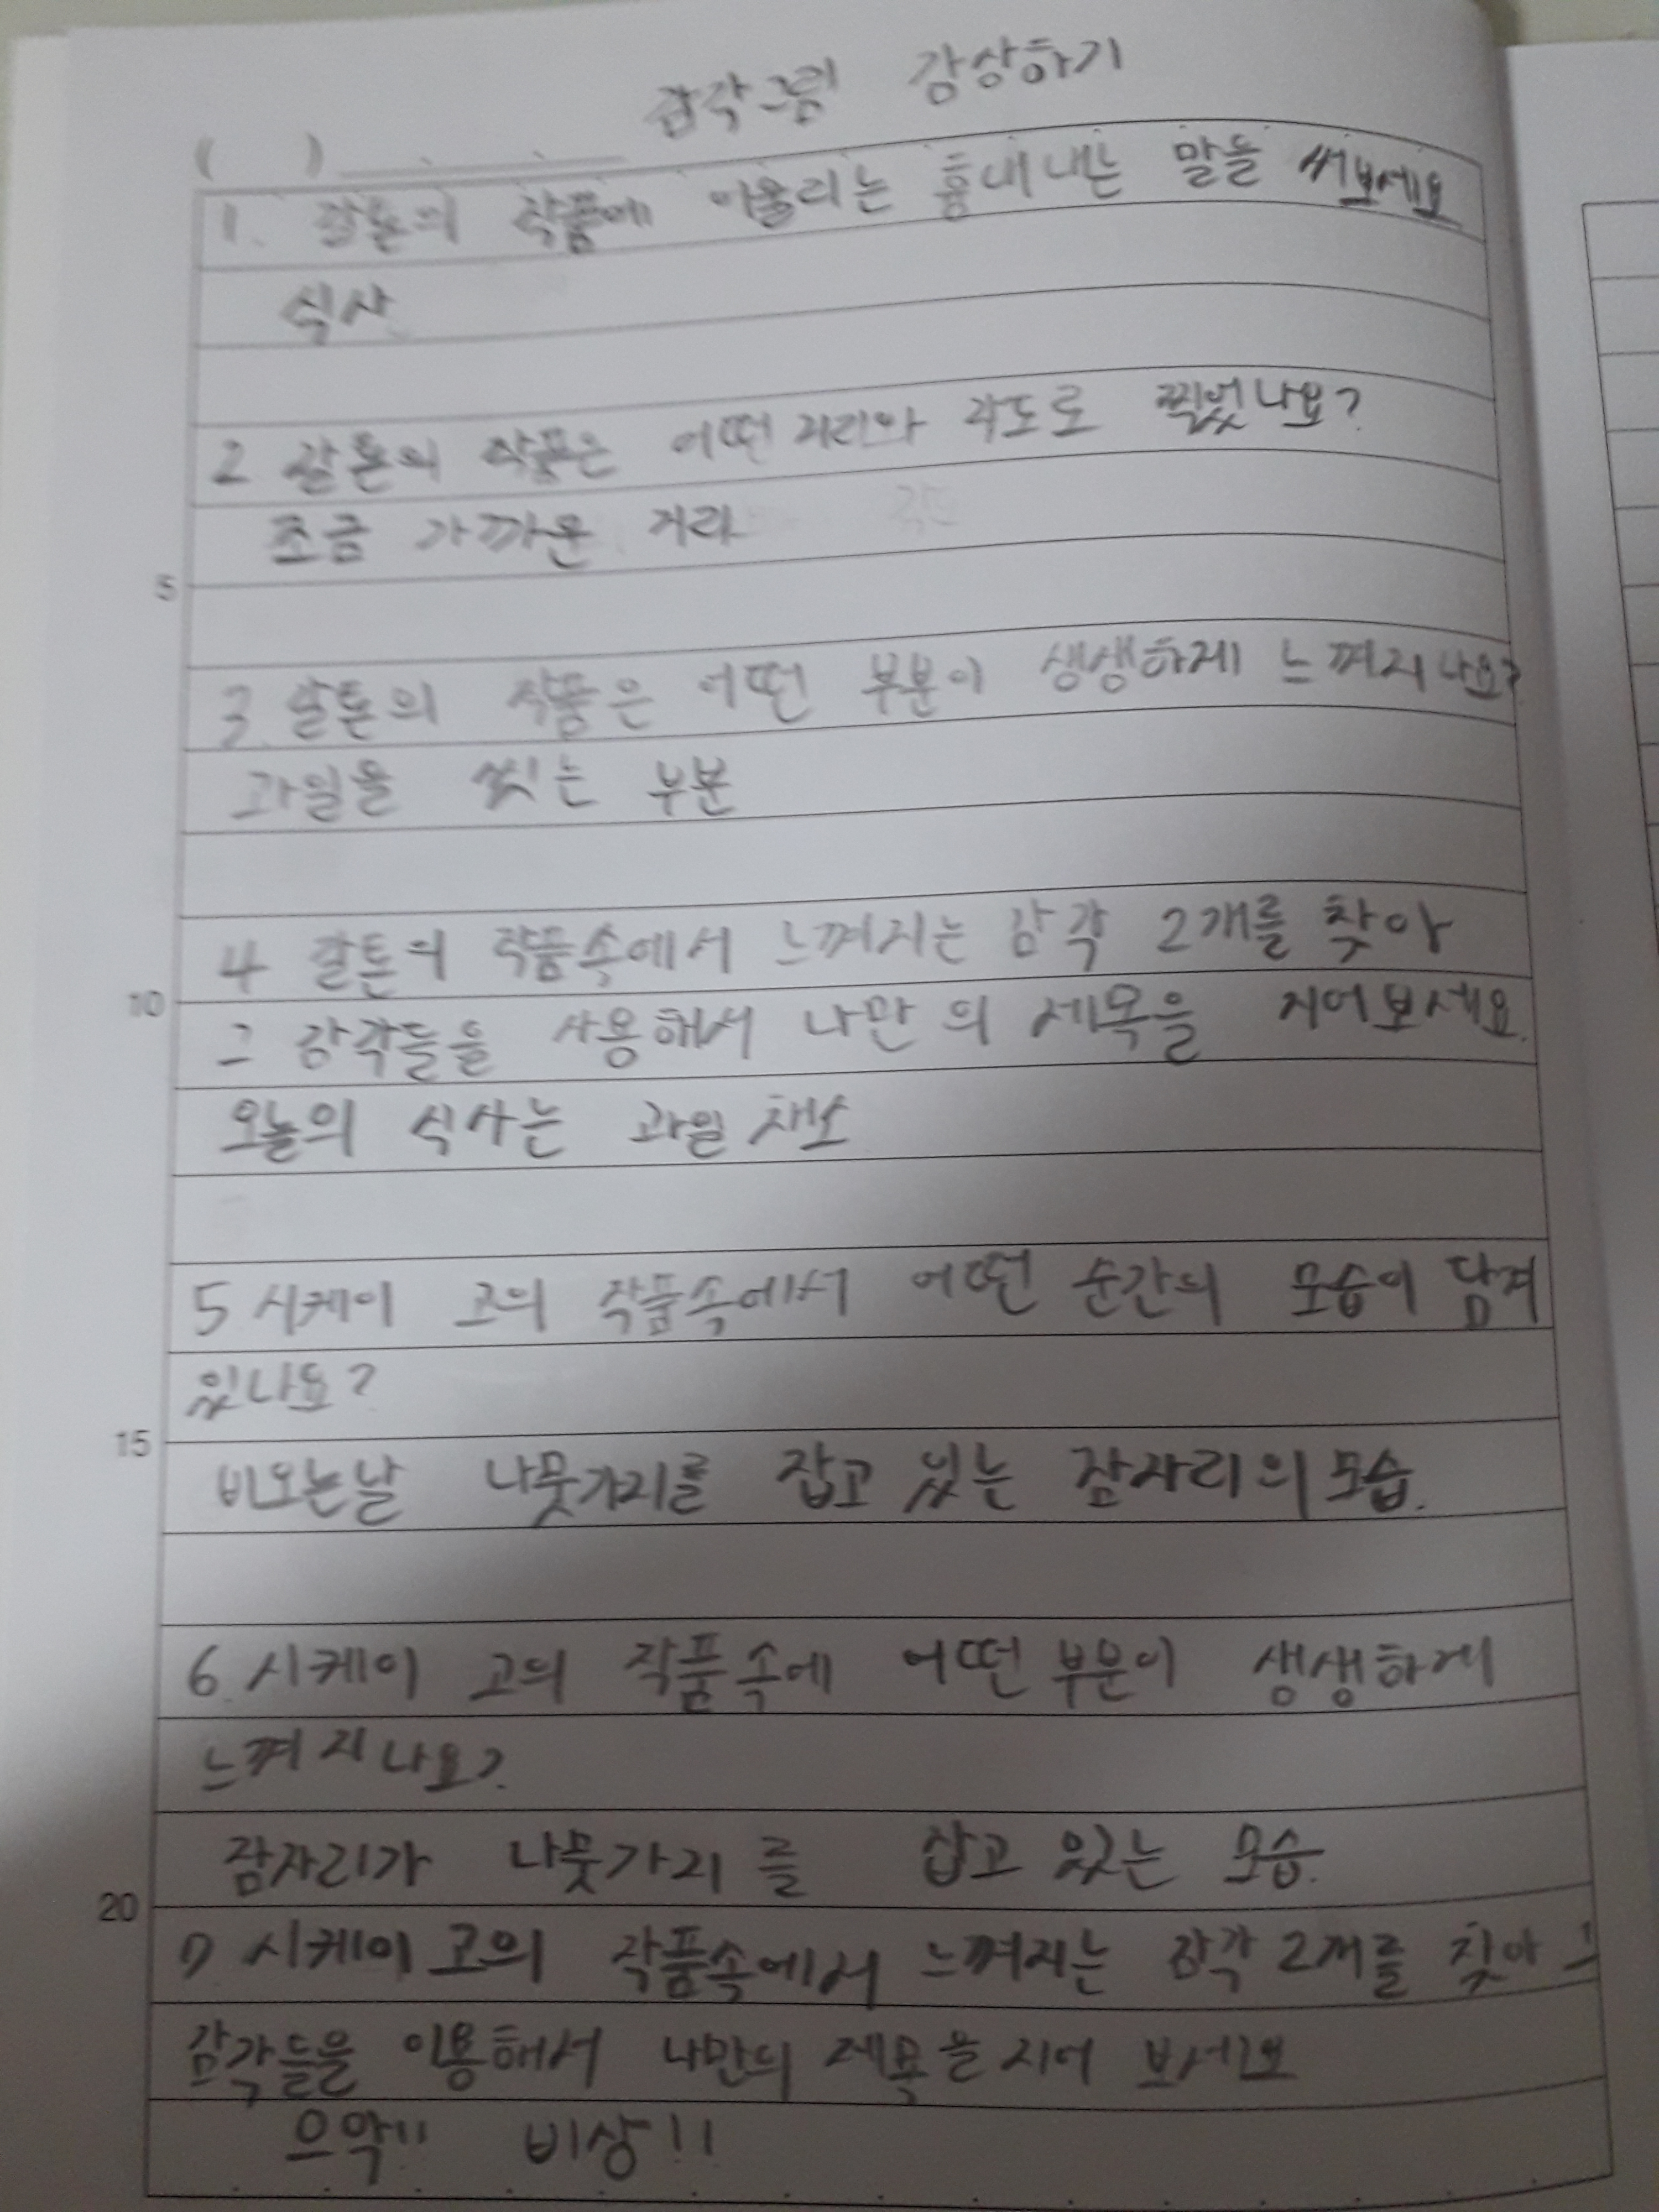 감각그림 감상하기
( )
1. 칼톤의 작품에 어울리는 흉내내는 말들 써보세요
식사
2 칼톤의 작품은 어떤 거리와 각도로 찍었나요?
조금 가까운 거리
5
3. 칼톤의 작품은 어떤 부분이 생생하게 느껴지나요?
과일을 씻는 부분
4 칼톤의 작품속에서 느껴지는 감각 2개를 찾아
10
그 감각들을 사용해서 나만의 제목을 지어보세요.
오늘의 식사는 과일 채소
5 시케이 고의 작품속에서 어떤 순간의 모습이 담겨
있나요?
15
비오는날 나뭇가지를 잡고 있는 잠자리의 모습.
6. 시케이 고의 작품속에 어떤 부분이 생생하게
느껴지나요?
잠자리가 나뭇가지를 잡고 있는 모습.
20
7 시케이 고의 작품속에서 느껴지는 감각 2개를 찾아 그
감각들을 이용해서 나만의 제목을 지어 보세요
으악!! 비상!!